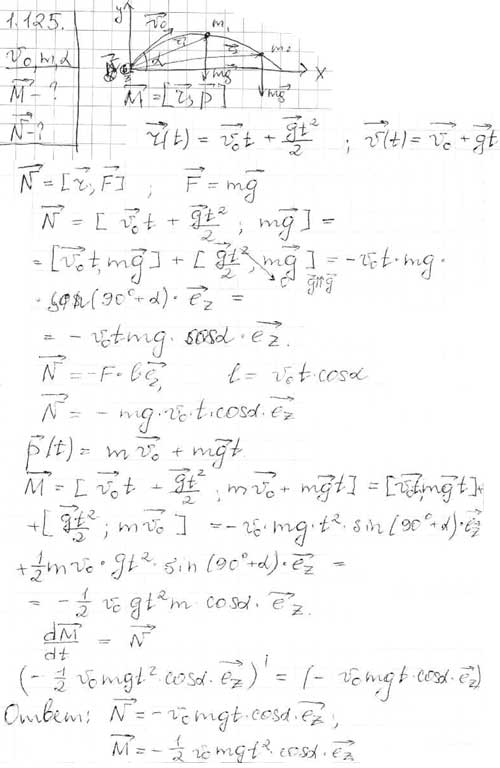 1.125.
y v₀ m₁
r₁ α r₂ m₂
mg mg x
v₀, m, α
M⃗ - ?
N⃗ - ?
M⃗ = [r⃗, p⃗]
r⃗(t) = v⃗₀t + g⃗t²/2 ; v⃗(t) = v⃗₀ + g⃗t
N⃗ = [r⃗, F⃗] ; F⃗ = mg⃗
N⃗ = [v⃗₀t + g⃗t²/2 ; mg⃗] =
= [v⃗₀t, mg⃗] + [g⃗t²/2, mg⃗] = -v₀t · mg ·
0 g⃗⇈g⃗
· sin(90° + α) · e⃗z =
= - v₀tmg · cosα · e⃗z.
N⃗ = -F · l e⃗z, l = v₀t · cosα
N⃗ = - mg · v₀ · t · cosα · e⃗z
p⃗(t) = mv⃗₀ + mg⃗t
M⃗ = [v⃗₀t + g⃗t²/2 ; mv⃗₀ + mg⃗t] = [v⃗₀t, mg⃗t] +
+ [g⃗t²/2 ; mv⃗₀] = -v₀ · mg · t² · sin(90° + α) · e⃗z
+ 1/2 mv₀ · gt² · sin(90° + α) · e⃗z =
= - 1/2 v₀gt²m cosα · e⃗z.
dM⃗/dt = N⃗
(- 1/2 v₀mgt² · cosα · e⃗z)' = (- v₀mgt · cosα · e⃗z)
Ответ: N⃗ = -v₀mgt · cosα · e⃗z;
M⃗ = - 1/2 v₀mgt² · cosα · e⃗z